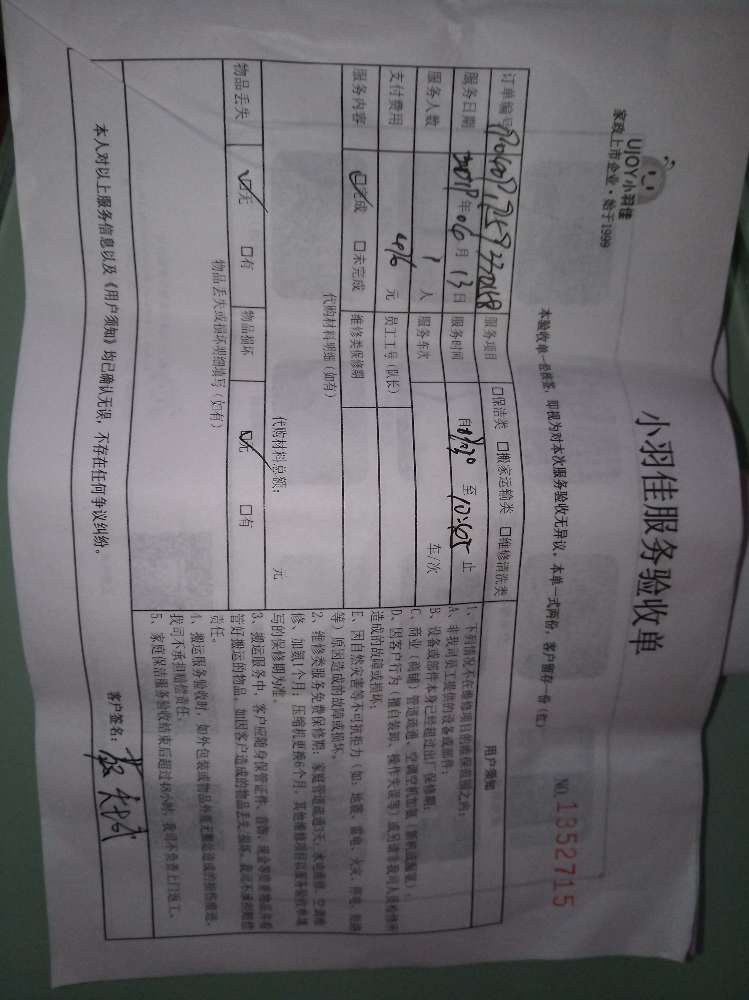 UJOY小羽佳
家政上市企业·始于1999
小羽佳服务验收单
本验收单一经核签，即视为对本次服务验收无异议，本单一式两份，客户留存一份（红）
NO.1352715
订单编号 服务项目 □保洁类 □搬家运输类 □维修清洗类
服务日期 年06月13日 服务时间 自8:30至 止
服务人数 1人 服务车次 车/次
支付费用 元 员工工号（队长）
服务内容 ☑完成 □未完成 维修类保修期
代购材料明细（如有）
代购材料总额： 元
物品丢失 ☑无 □有 物品损坏 ☑无 □有
物品丢失或损坏明细填写（如有）
用户须知
1、下列情况不在维修项目的质保范围之内：
A、非我司员工提供的设备或部件；
B、设备或部件本身已经超过出厂保修期；
C、商业（商铺）管道疏通、空调空机加氨、
D、因客户行为（擅自装卸、操作失误等）或另请非我司人员检修所
造成的故障或损坏；
E、因自然灾害等不可抗拒力（如：地震、雷电、火灾、
等）原因造成的故障或损坏。
2、维修类服务免费保修期：家庭管道疏通3天，
修、加氨1个月，压缩机更换6个月，其他维修项目以服务验收单填
写的保修期为准。
3、搬运服务中，客户应随身保管证件、首饰、现金等贵重物品并看
管好搬运的物品，如因客户造成的物品丢失、损坏，我司不承担赔偿
责任。
4、搬运服务验收时，如外包装或物品外观无搬运造成的损伤痕迹，
我司不承担赔偿责任。
5、家庭保洁服务验收结束后超过48小时，我司不负责上门返工。
本人对以上服务信息以及《用户须知》均已确认无误，不存在任何争议纠纷。
客户签名：